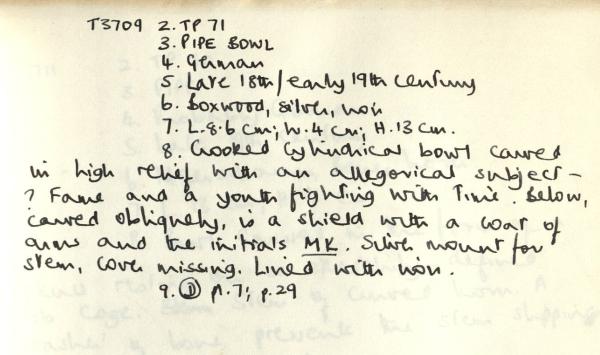 T3709 2. TP 71
3. PIPE BOWL
4. German
5. Late 18th/early 19th century
6. Boxwood, silver, iron
7. L.8.6 cm; W.4 cm; H.13 cm.
8. Crooked cylindrical bowl carved
in high relief with an allegorical subject –
? Fame and a youth fighting with Time. Below,
carved obliquely, is a shield with a coat of
arms and the initials MK. Silver mount for
stem, cover missing. Lined with iron.
9. ① A.7; p.29